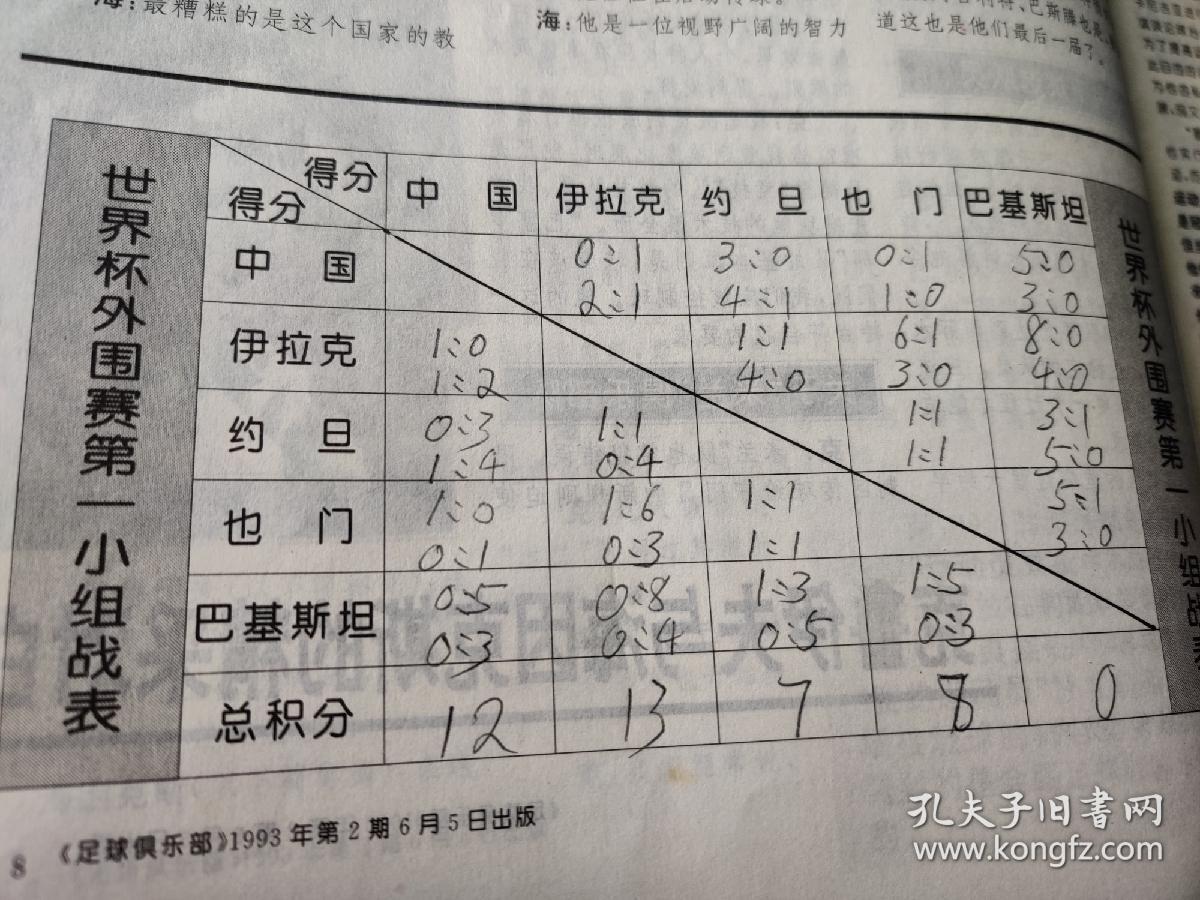 海：最糟糕的是这个国家的教
海：他是一位视野广阔的智力
道这也是他们最后一届了。
世界杯外围赛第一小组战表
得分
得分
中国 伊拉克 约旦 也门 巴基斯坦
中国 0:1 3:0 0:1 5:0
2:1 4:1 1:0 3:0
伊拉克 1:0 1:1 6:1 8:0
1:2 4:0 3:0 4:0
约旦 0:3 1:1 1:1 3:1
1:4 0:4 1:1 5:0
也门 1:0 1:6 1:1 5:1
0:1 0:3 1:1 3:0
巴基斯坦 0:5 0:8 1:3 1:5
0:3 0:4 0:5 0:3
总积分 12 13 7 8 0
世界杯外围赛第一小组战表
8 《足球俱乐部》1993年第2期6月5日出版
孔夫子旧书网
www.kongfz.com